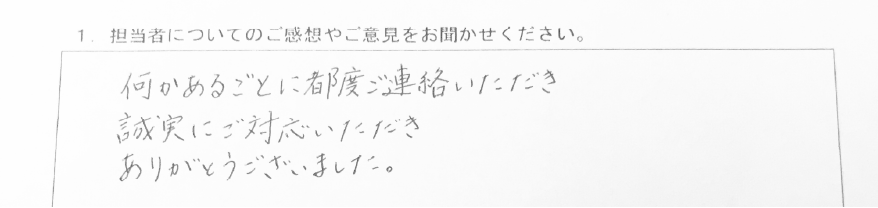 1. 担当者についてのご感想やご意見をお聞かせください。
何かあるごとに都度ご連絡いただき
誠実にご対応いただき
ありがとうございました。